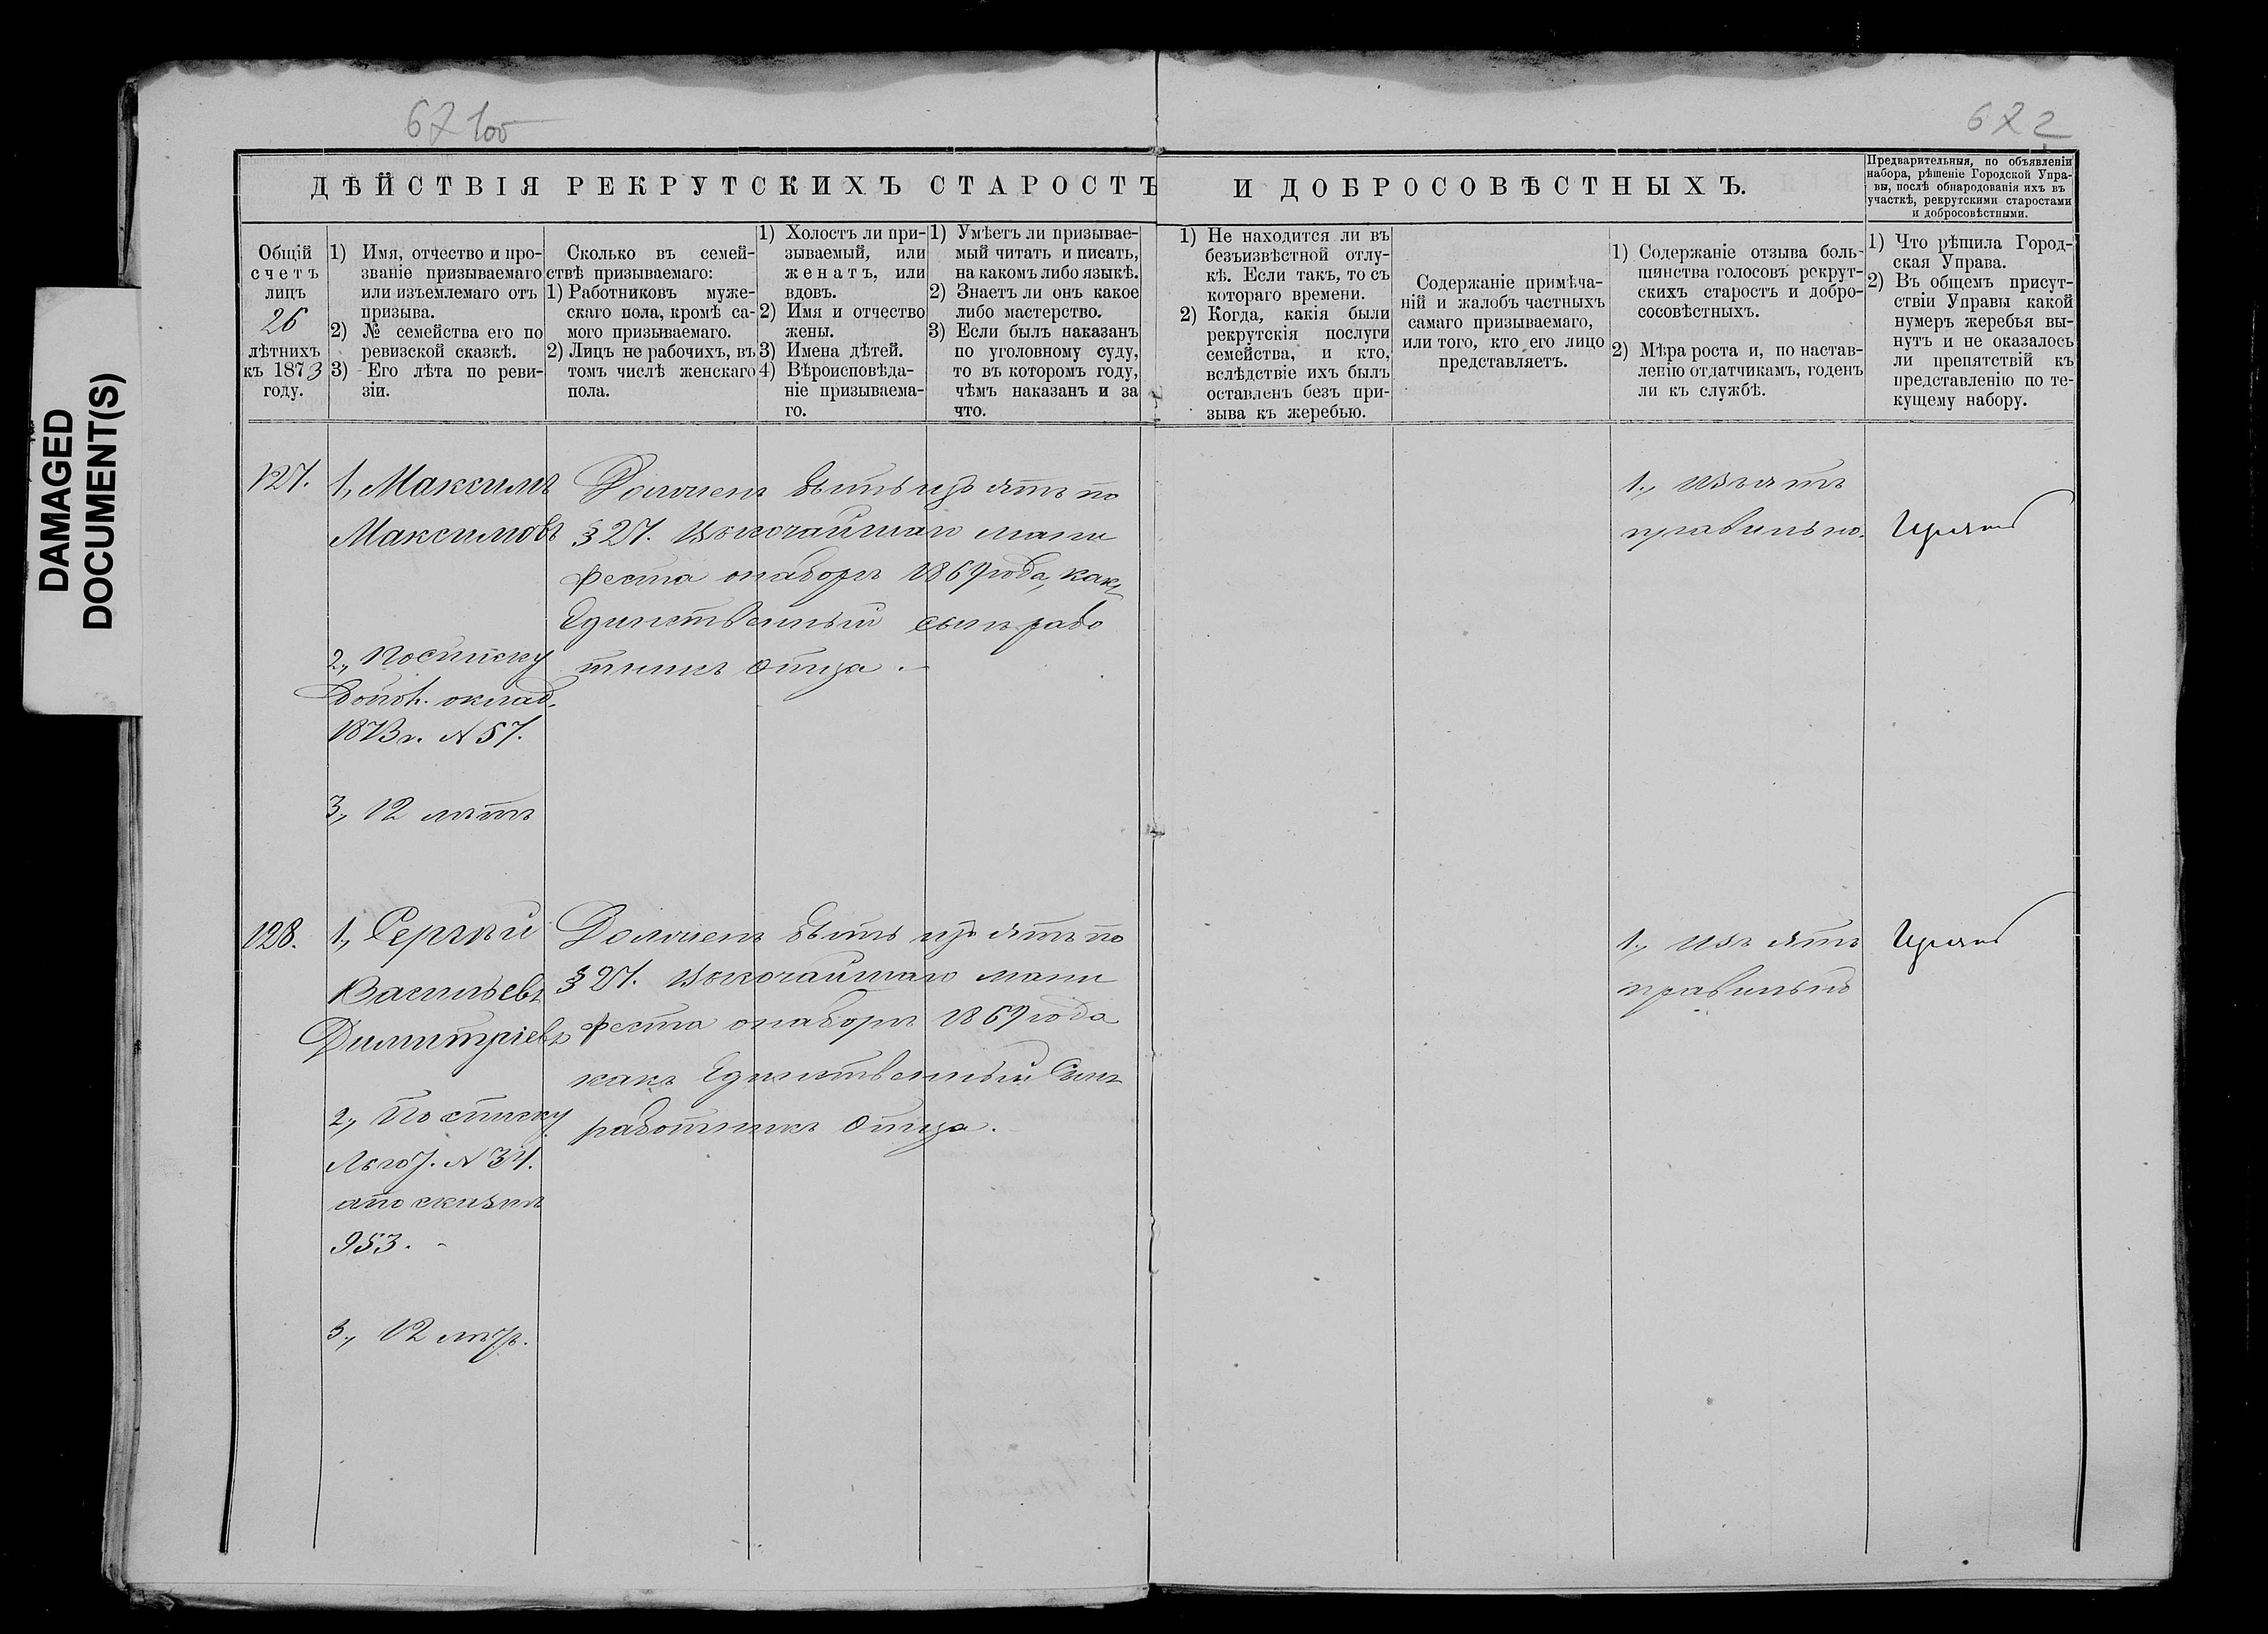 DAMAGED
DOCUMENT(S)
67 100
672
ДѢЙСТВІЯ РЕКРУТСКИХЪ СТАРОСТЪ И ДОБРОСОВѢСТНЫХЪ.
Предварительныя, по объявленіи
набора, рѣшеніе Городской Упра-
вы, послѣ обнародованія ихъ въ
участкѣ, рекрутскими старостами
и добросовѣстными.
Общій
счетъ
лицъ
26
лѣтнихъ
къ 1873
году.
1) Имя, отчество и про-
званіе призываемаго
или изъемлемаго отъ
призыва.
2) № семейства его по
ревизской сказкѣ.
3) Его лѣта по реви-
зіи.
Сколько въ семей-
ствѣ призываемаго:
1) Работниковъ муже-
скаго пола, кромѣ са-
мого призываемаго.
2) Лицъ не рабочихъ, въ
томъ числѣ женскаго
пола.
1) Холостъ ли при-
зываемый, или
женатъ, или
вдовъ.
2) Имя и отчество
жены.
3) Имена дѣтей.
4) Вѣроисповѣда-
ніе призываема-
го.
1) Умѣетъ ли призывае-
мый читать и писать,
на какомъ либо языкѣ.
2) Знаетъ ли онъ какое
либо мастерство.
3) Если былъ наказанъ
по уголовному суду,
то въ которомъ году,
чѣмъ наказанъ и за
что.
1) Не находится ли въ
безъизвѣстной отлу-
кѣ. Если такъ, то съ
котораго времени.
2) Когда, какія были
рекрутскія послуги
семейства, и кто,
вслѣдствіе ихъ былъ
оставленъ безъ при-
зыва къ жеребью.
Содержаніе примѣча-
ній и жалобъ частныхъ
самаго призываемаго,
или того, кто его лицо
представляетъ.
1) Содержаніе отзыва боль-
шинства голосовъ рекрут-
скихъ старостъ и добро-
совѣстныхъ.
2) Мѣра роста и, по настав-
ленію отдатчикамъ, годенъ
ли къ службѣ.
1) Что рѣшила Город-
ская Управа.
2) Въ общемъ присут-
ствіи Управы какой
нумеръ жеребья вы-
нутъ и не оказалось
ли препятствій къ
представленію по те-
кущему набору.
127.
1, Максимъ
Максимовъ
2, По списку
Допол. оклад.
1873 г. № 57.
3, 12 лѣтъ
Долженъ быть изъятъ по
§ 27. Высочайшаго мани
феста о наборѣ 1869 года, какъ
Единственный сынъ рабо
тникъ отца.
1., Изъятъ
правильно.
128.
1, Сергѣй
Васильевъ
Димитріевъ
2, По списку
Льгот. № 34.
а по сказкѣ
953.
3, 12 лѣтъ.
Долженъ быть изъятъ по
§ 27. Высочайшаго мани
феста о наборѣ 1869 года
какъ Единственный Сынъ
работникъ отца.
1., Изъятъ
правильно